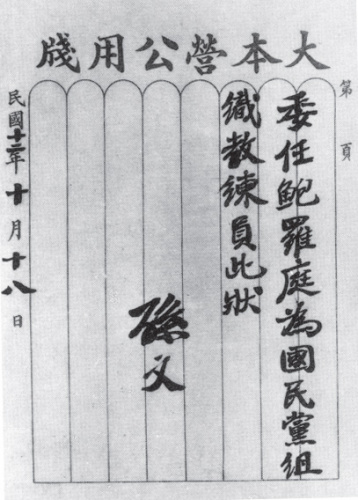 大本營公用牋
第 頁
委任鮑羅庭為國民黨組
織教練員此狀
孫文
民國十二年十月十八日